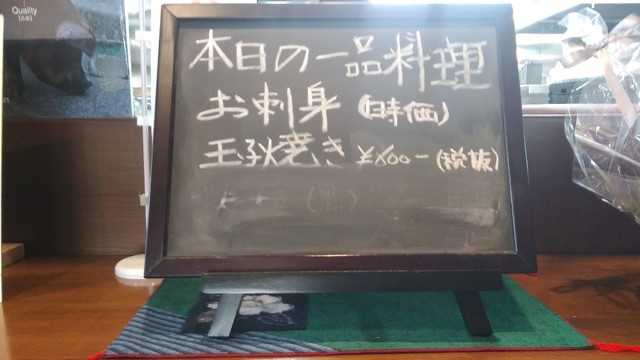 Quality
本日の一品料理
お刺身(時価)
玉子焼き ¥800-(税抜)